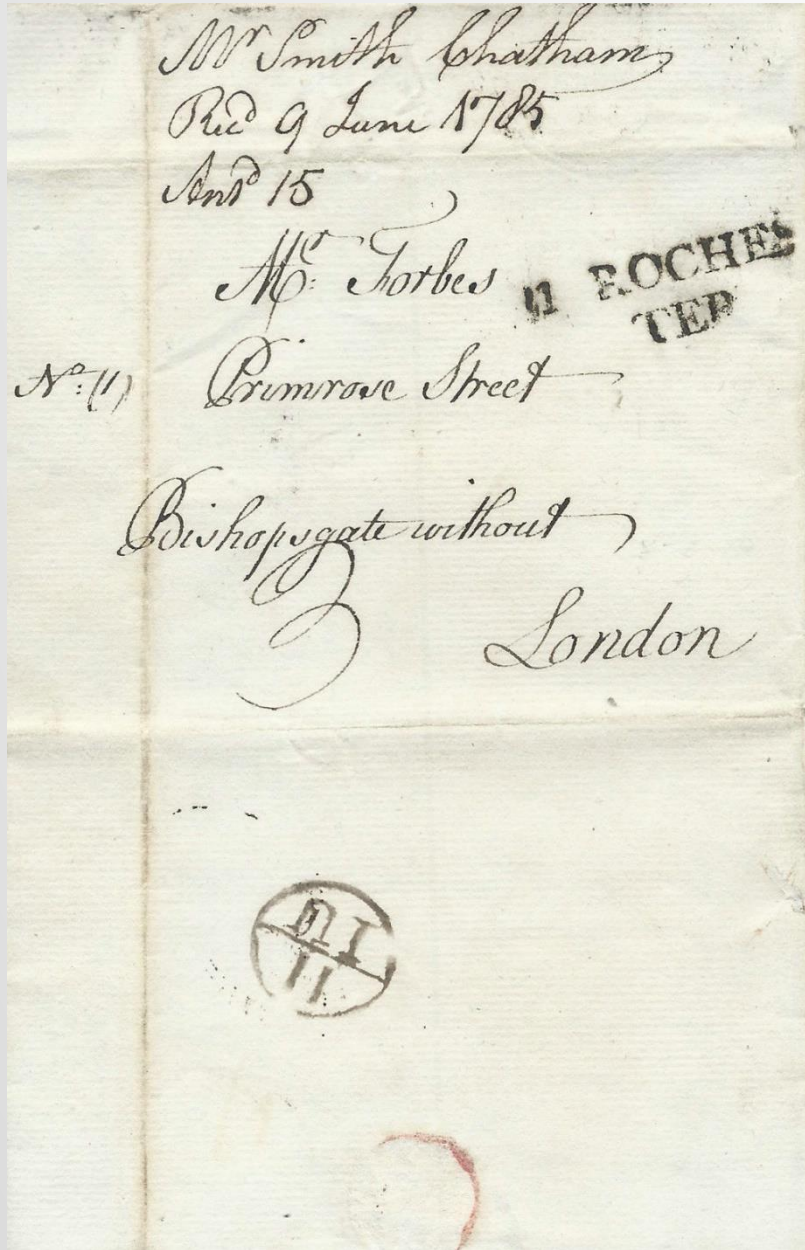 Mr Smith Chatham
Recd 9 June 1785
Ansd 15
Mr: Forbes
11 ROCHES
TER
No: (1) Primrose Street
Bishopsgate without
London
IU
11